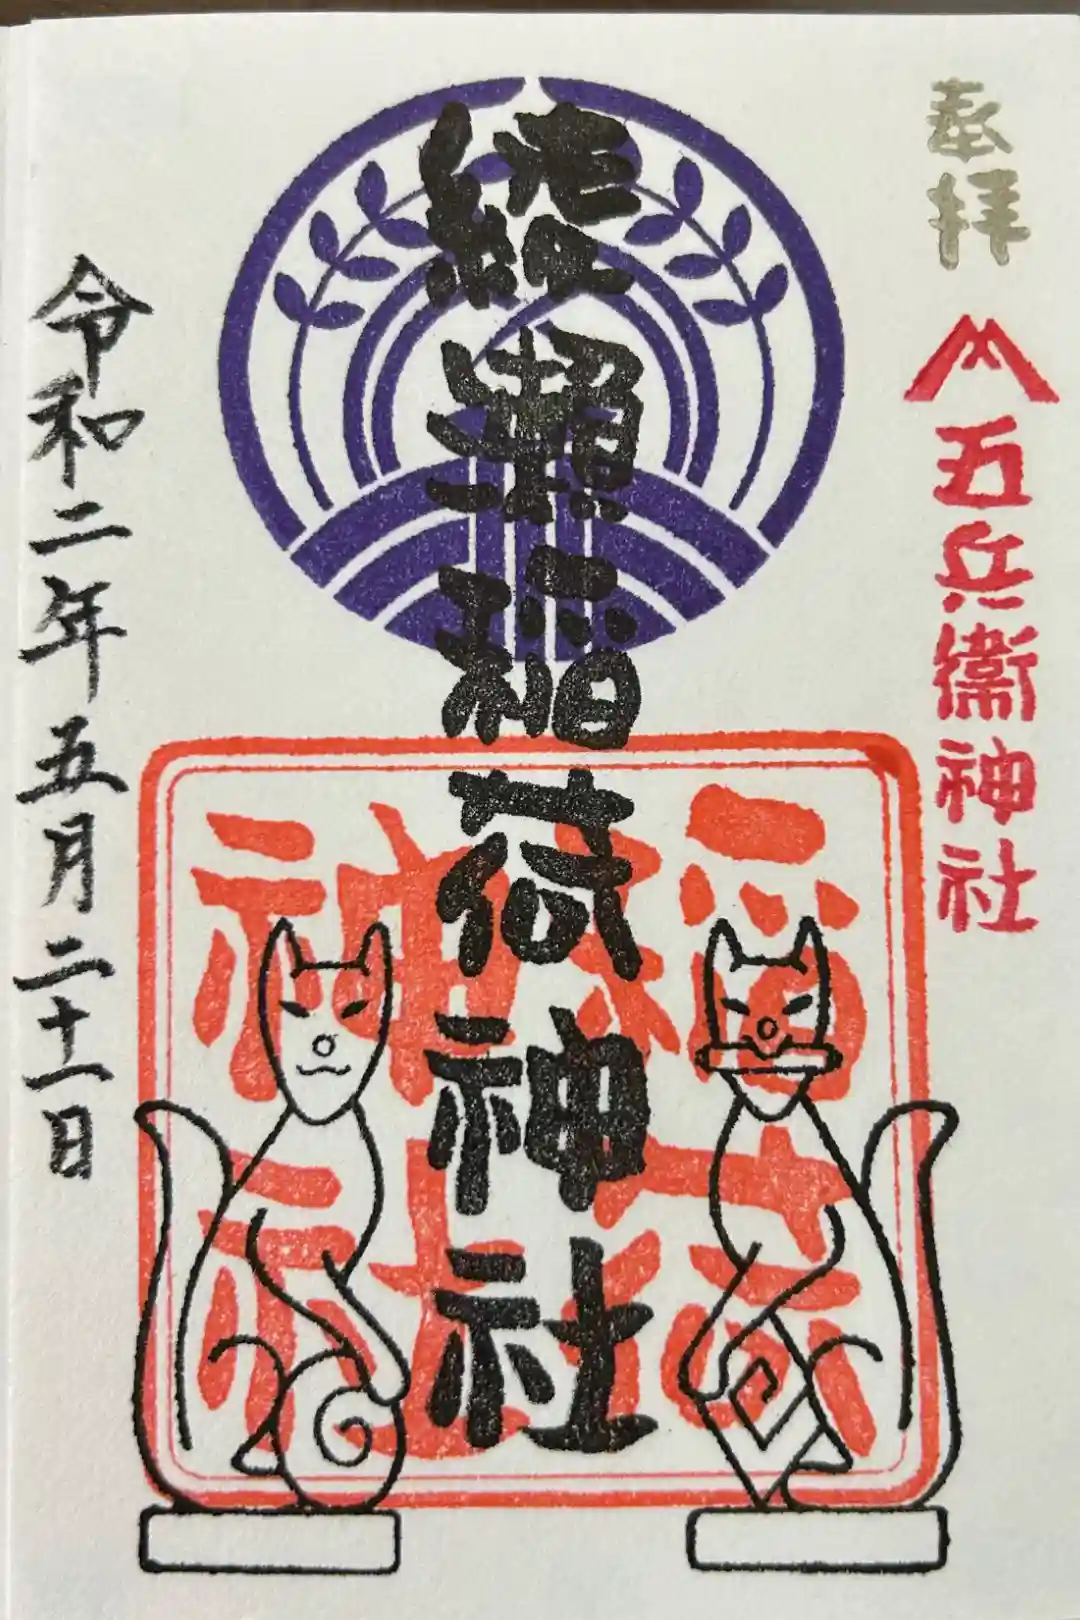 奉拝
五兵衛神社
綾瀬稲荷神社
令和二年五月二十一日
稲荷
神社